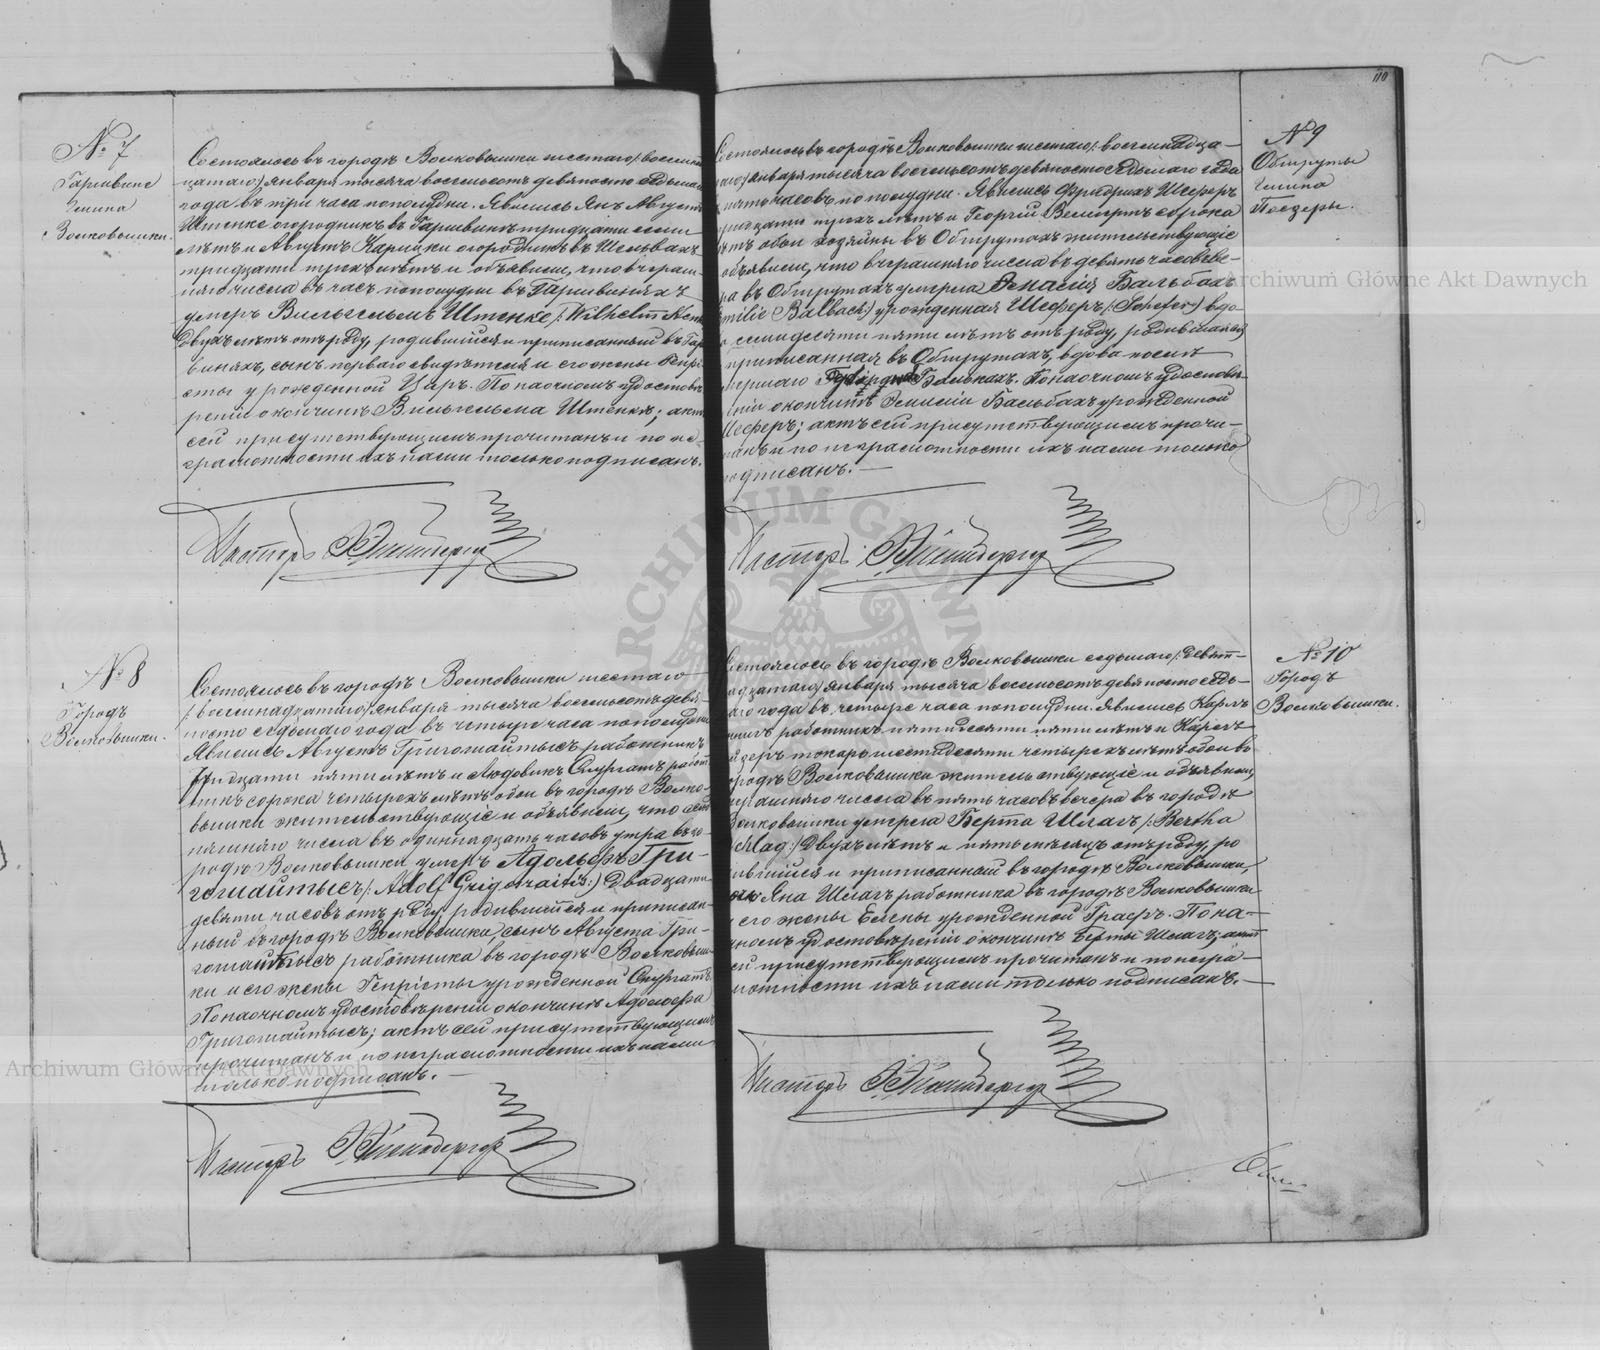 № 7
Гаршвине
Гмина
Волковышки.
Состоялось въ городѣ Волковышки шестаго /: восемнад-
цатаго:/ Января тысяча восемьсотъ девяносто седьмаго
года въ три часа пополудни. Явились Янъ Августъ
Штенке огородникъ въ Гаршвиняхъ тридцати семи
лѣтъ и Августъ огородникъ въ Шельвахъ
тридцати трехъ лѣтъ и объявили, что вчераш-
няго числа въ часъ пополудни въ Гаршвиняхъ
умеръ Вильгельмъ Штенке /: Wilhelm
двухъ лѣтъ отъ роду, родившійся и приписанный въ Гар
виняхъ, сынъ перваго свидѣтеля и его жены Генрі-
еты урожденной Царъ. По наочномъ удостовѣ
реніи о кончинѣ Вильгельма Штенке; актъ
сей присутствующимъ прочитанъ и по не-
грамотности ихъ нами только подписанъ.
Пасторъ
№ 8
Городъ
Волковышки.
Состоялось въ городѣ Волковышки шестаго
/: восемнадцатаго:/ Января тысяча восемьсотъ девя-
носто седьмаго года въ четыре часа пополудни
Явились Августъ Григотайтысъ работникъ
тридцати пяти лѣтъ и Людовикъ работ
никъ сорока четырехъ лѣтъ обои въ городѣ Волко-
вышки жительствующіе и объявили, что
няшняго числа въ одиннадцать часовъ утра въ го-
родѣ Волковышки умеръ Адольфъ Гри-
готайтысъ /: Adolf Grigotaitis :/ двадцати
девяти часовъ отъ роду, родившійся и приписан-
ный въ городѣ Волковышки, сынъ Августа Гри-
готайтысъ работника въ городѣ Волковыш-
ки и его жены Генріеты урожденной
По наочномъ удостовѣреніи о кончинѣ Адольфа
Григотайтысъ; актъ сей присутствующимъ
прочитанъ и по неграмотности ихъ нами
только подписанъ.
Пасторъ
110
№ 9
Обшруты
Гмина
Поезеры.
Состоялось въ городѣ Волковышки шестаго /: восемнадца-
таго:/ Января тысяча восемьсотъ девяносто седьмаго года
въ пять часовъ по полудни. Явились Фридрихъ Шеферъ
тридцати лѣтъ и Георгій сорока
лѣтъ обои хозяины въ Обшрутахъ жительствующіе
объявили, что вчерашняго числа въ девять часовъ ве-
ра въ Обшрутахъ умерла Эмилія Бальбахъ
Emilie Balbach :/ урожденная Шеферъ /: Schefer :/ вдо
семидесяти пяти лѣтъ отъ роду, родившаяся
приписанная въ Обшрутахъ, вдова послѣ
умершаго Бальбахъ. По наочномъ удостовѣ-
реніи о кончинѣ Эмиліи Бальбахъ урожденной
Шеферъ; актъ сей присутствующимъ прочи-
танъ и по неграмотности ихъ нами только
подписанъ.
Пасторъ
№ 10
Городъ
Волковышки.
Состоялось въ городѣ Волковышки седьмаго /: девят-
надцатаго:/ Января тысяча восемьсотъ девяносто седь-
маго года въ четыре часа пополудни. Явились Карлъ
работникъ пятидесяти пяти лѣтъ и Карлъ
токарь шестидесяти четырехъ лѣтъ обои въ
городѣ Волковышки жительствующіе и объявили,
вчерашняго числа въ пять часовъ вечера въ городѣ
Волковышки умерла Берта Шлагъ /: Bertha
Schlag :/ двухъ лѣтъ и пять мѣсяцъ отъ роду, ро
дившійся и приписанный въ городѣ Волковышки,
Яна Шлагъ работника въ городѣ Волковышки
и его жены Елены урожденной Граеръ. По на-
очномъ удостовѣреніи о кончинѣ Берты Шлагъ; актъ
сей присутствующимъ прочитанъ и по негра-
мотности ихъ нами только подписанъ.
Пасторъ
Archiwum Główne Akt Dawnych
Archiwum Główne Akt Dawnych